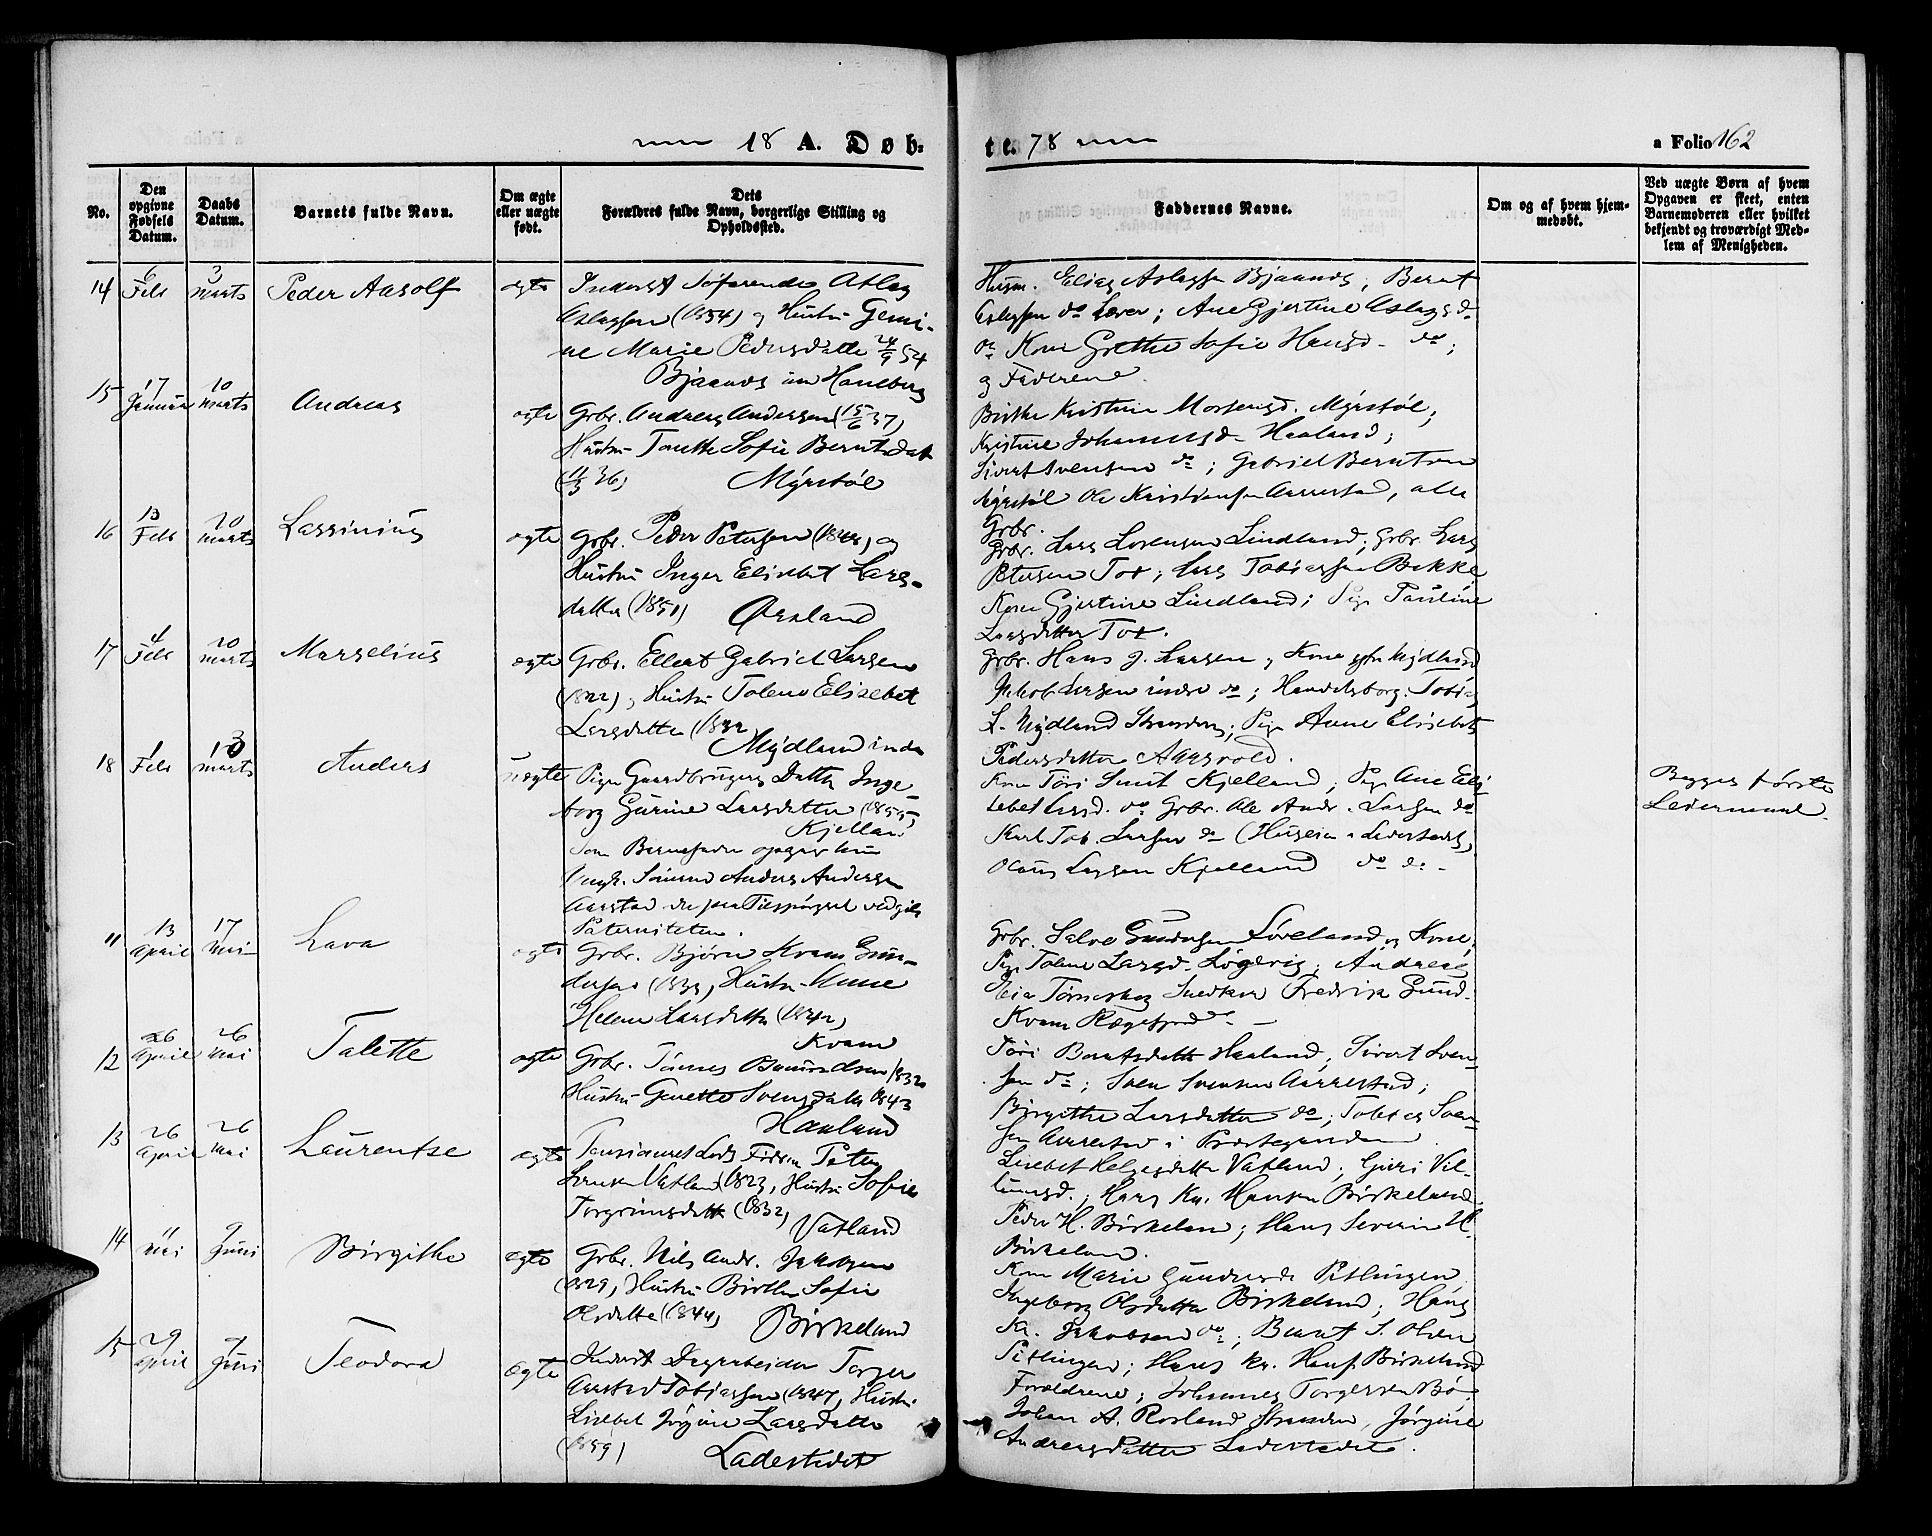 18 A. Døb-
te. 78
a Folio 162
No.
Den opgivne Fødsels Datum.
Daabs Datum.
Barnets fulde Navn.
Om ægte eller uægte født.
Dets Forældres fulde Navn, borgerlige Stilling og Opholdssted.
Faddernes Navne.
Om og af hvem hjem-
medøbt.
Ved uægte Børn af hvem
Opgaven er skeet, enten
Barnemoderen eller hvilket
bekjendt og troværdigt Med-
lem af Menigheden.
14
6 Feb
3 marts
Peder Aasolf
ægte
Inderst Søfarende Atlag
Aslagsen (1854) og Hustru Gemi-
ne Marie Pedersdatter 24/9 54
Bjaanes
Husm. Elias Aslagsen Bjaanes; Bernt
Aslagsen do; Ane Gjertine Aslagsd.
do Kone Grethe Sofie Hansd. do;
og Faderene.
15
17 Januar
10 marts
Andreas
ægte
Grbr. Andreas Andersen (15/6 37)
Hustru Tonette Sofie Berntsdat
36) Myrstøl
Birthe Kristine Mortensd. Myrstøl;
Kristine Johannesd. Haaland;
Sivert Svensen do; Gabriel Berntsen
Myrstøl Ole Kristiansen Aarrestad, alle
Grbr.
16
13 Feb
20 marts
Lassinius
ægte
Grbr. Peder Petersen (1848) og
Hustru Inger Elisebet Lars-
datter (1851)
Grbr. Lars Lorensen Lindland; Grbr. Lars
Petersen Tot; Lars Tobiassen Bakke
Kone Gjertine Lindland; Pige Pauline
Larsdatter Tot.
17
4 Feb
20 marts
Marselius
ægte
Grbr. Ellert Gabriel Larsen
(1822), Hustru Tolene Elisebet
Larsdatter (1832
Mydland indre
Grbr. Hans J. Larsen, Kone Mydland
Jakob Larsen indre do; Handelsborg. Tobias
L. Mydland Stranden; Pige Anne Elisebet
Pedersdatter Aarsvold.
18
1 Feb
10 marts
Anders
uægte
Pige Gaardbrugers Datter Inge-
borg Gurine Larsdatter (1855)
Kjelland
Som Barnefader opgav hun
Ungk. Sømand Anders Andersen
Aarstad der paa Tilspørgsel vedgik
Paterniteten.
Kone Tøri Kjelland, Pige Ane Eli-
sebet Larsd. do Grbr. Ole Andr. Larsen do
Karl Tob. Larsen do
Olaus Larsen Kjelland do do.
Begges første
Leiermaal.
11
13 April
17 Mai
Lava
ægte
Grbr. Bjørn Kvam Gun-
dersen (1839, Hustru Anne
Helene Larsdatter (1842)
Kvam
Grbr. Salve Gundersen Løveland og Kone;
Pige Tolene Larsd. Løgevig; Andreas
Snedker Fredrik Gund.
Kvam Rægefjord do.
12
26 April
26 Mai
Talette
ægte
Grbr. Tønnes 1832
Hustru Genette Svensdatter 1843
Haaland
Tøri Berntsdatter Haaland, Sivert Sven-
sen do; Sven Svensen Aarrestad;
Birgithe Larsdatter do; Tobias Sven-
sen Aarrestad i Præstegaarden
13
26 April
26 Mai
Laurentse
ægte
Pensioneret Lods Peter
Larsen Vatland (1823, Hustru Sofie
Torgrimsdatter (1832)
Vatland
Lisebet Helgesdatter Vatland; Guri Vil-
lumsd.; Hans Kr. Hansen Birkeland
Peder H. Birkeland; Hans Severin H.
Birkeland.
14
11 Mai
9 Juni
Birgithe
ægte
Grbr. Nils Andr. Jakobsen
1829, Hustru Birthe Sofie
Olsdatter (1844)
Birkeland
Kone Marie Gundersd. Pitlingen
Ingeborg Olsdatter Birkeland; Hans
Kr. Jakobsen do; Bernt S. Olsen
Pitlingen; Hans Kr. Hans. Birkeland
15
29 April
9 Juni
Teodora
ægte
Inderst Dagarbeider Torger
Aarstad Tobiassen (1847, Hustru
Lisebet Jørgine Larsdatter
(1859)
Ladestedet
Forældrene; Johannes Torgersen Bø
Johan A. Rosland Stranden, Jørgine
Andreasdatter Ladestedet.